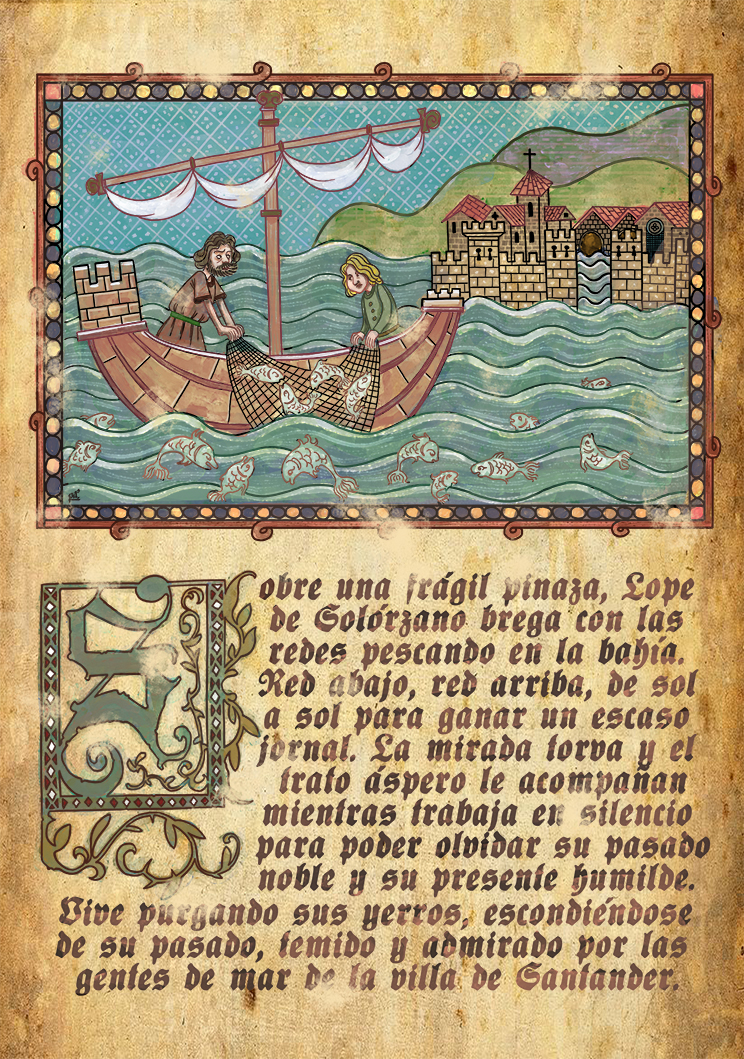 Sobre una frágil pinaza, Lope
de Solórzano brega con las
redes pescando en la bahía.
Red abajo, red arriba, de sol
a sol para ganar un escaso
jornal. La mirada torva y el
trato áspero le acompañan
mientras trabaja en silencio
para poder olvidar su pasado
noble y su presente humilde.
Vive purgando sus yerros, escondiéndose
de su pasado, temido y admirado por las
gentes de mar de la villa de Santander.